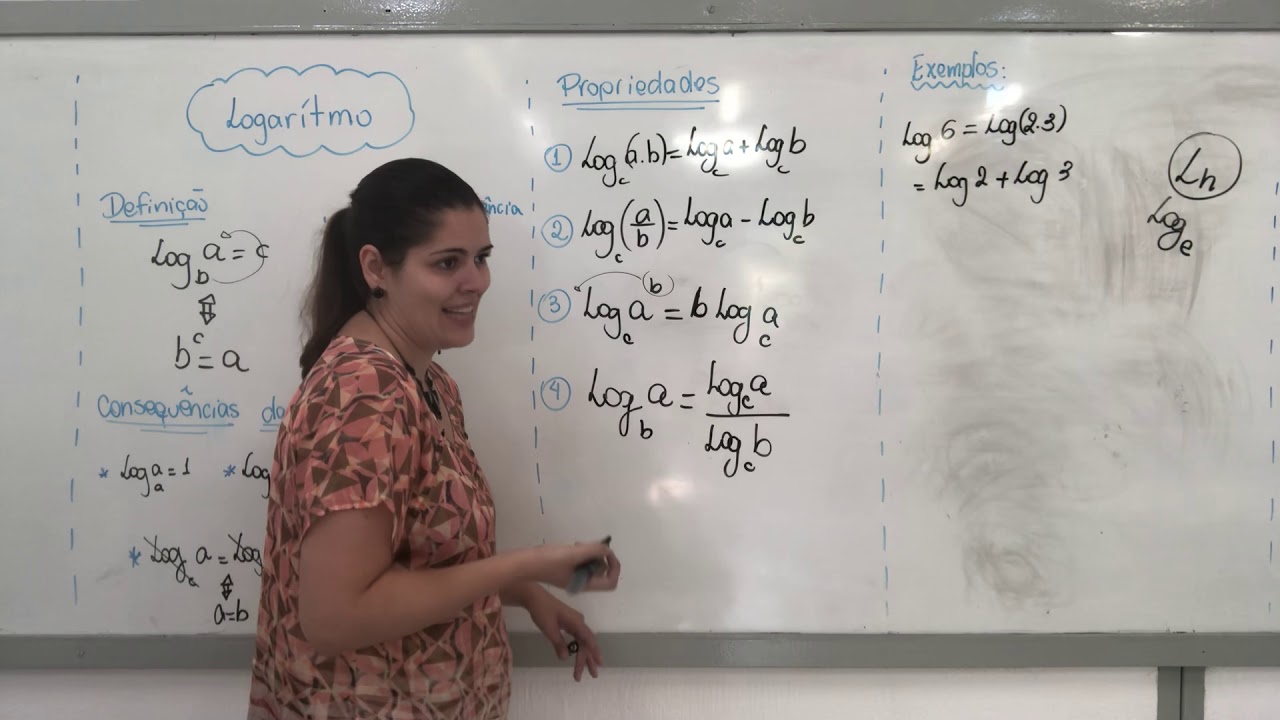 Logarítmo
Definição
Log_b a = c
⇕
b^c = a
ência
Consequências da
* Log_a a = 1
* Log
* Log_c a = Log
⇕
a = b
Propriedades
① Log_c (a.b) = Log_c a + Log_c b
② Log_c (a/b) = Log_c a - Log_c b
③ Log_c a^(b) = b Log_c a
④ Log_b a = Log_c a / Log_c b
Exemplos:
Log 6 = Log(2.3)
= Log 2 + Log 3
Ln
Log_e